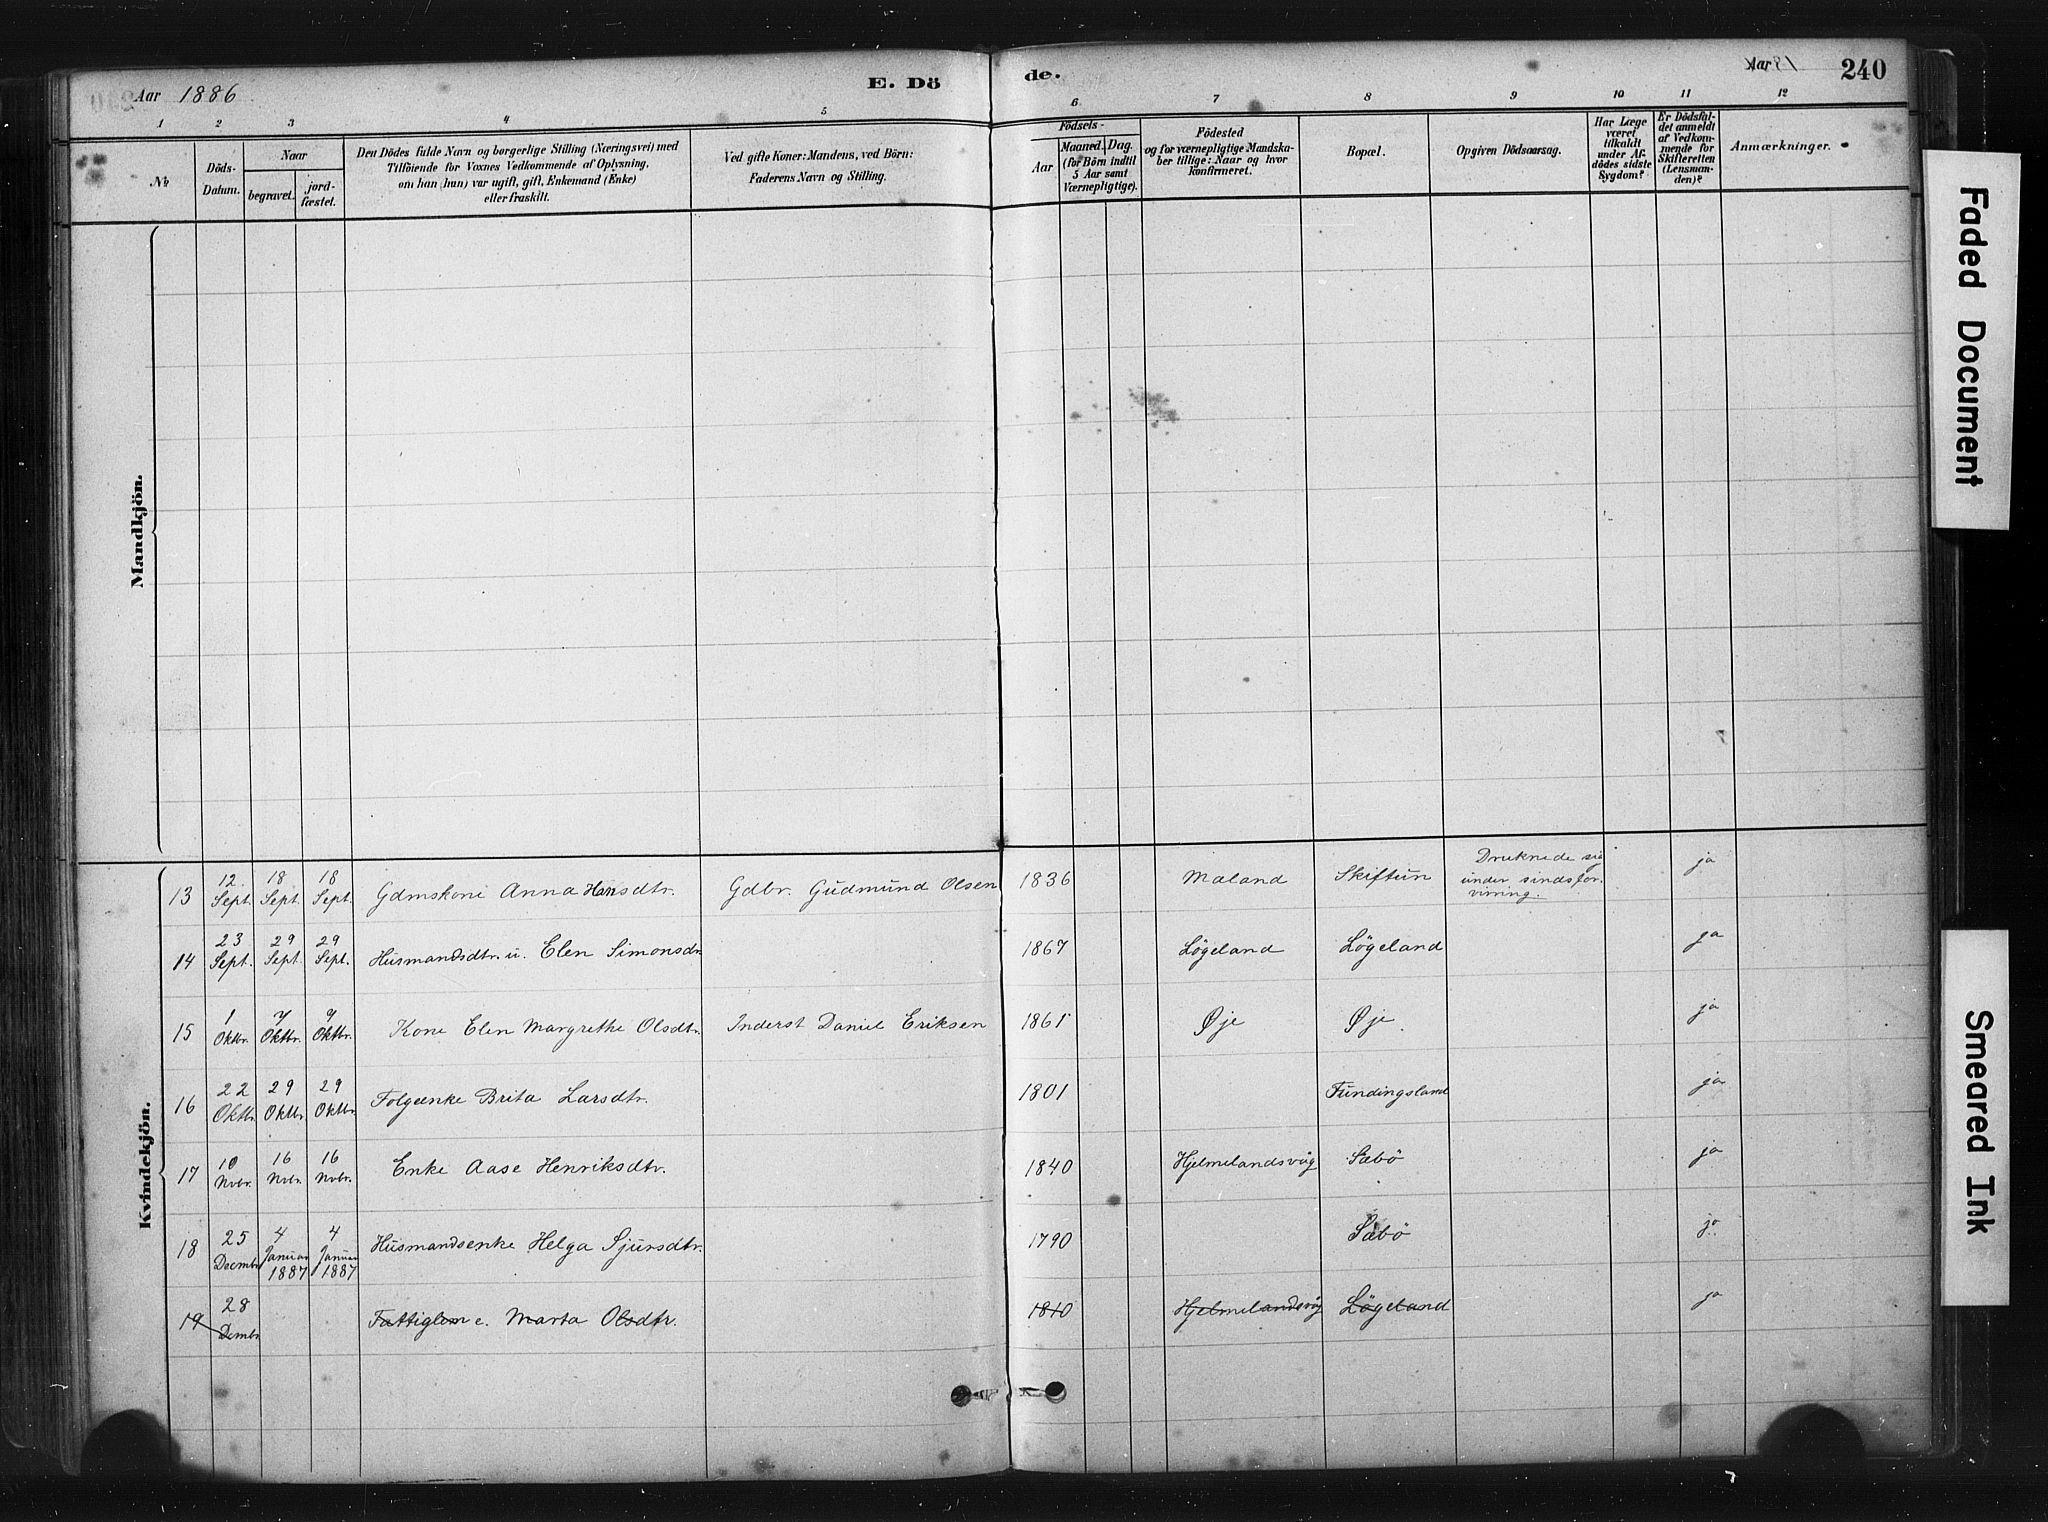 Aar 1886
E. Döde.
Aar 18
240
1 2 3 4 5 6 7 8 9 10 11 12
No
Döds-Datum.
Naar
begravet.
jord-fæstet.
Den Dödes fulde Navn og borgerlige Stilling (Næringsvei) med
Tilföiende for Voxnes Vedkommende af Oplysning,
om han (hun) var ugift, gift, Enkemand (Enke)
eller fraskilt.
Ved gifte Koner: Mandens, ved Börn:
Faderens Navn og Stilling.
Födsels-
Aar
Maaned. Dag.
(for Börn indtil
5 Aar samt
Værnepligtige).
Födested
og for værnepligtige Mandska-
ber tillige: Naar og hvor
konfirmeret.
Bopæl.
Opgiven Dödsaarsag.
Har Læge
været
tilkaldt
under Af-
dödes sidste
Sygdom?
Er Dödsfal-
det anmeldt
af Vedkom-
mende for
Skifteretten
(Lensman-
den)?
Anmærkninger.
Mandkjön.
Kvindekjön.
13 12 Sept. 18 Sept. 18 Sept. Gdmskone Anna Hansdtr. Gdbr. Gudmund Olsen 1836 Mæland Skiftun Druknede sig
under sindsfor-
virring. ja
14 23 Sept. 29 Sept. 29 Sept. Husmandsdtr. u. Elen Simonsdr. 1867 Løgeland Løgeland ja
15 1 Oktbr. 7 Oktbr. 9 Oktbr. Kone Elen Margrethe Olsdtr. Inderst Daniel Eriksen 1861 Øje Øje. ja
16 22 Oktbr. 29 Oktbr. 29 Oktbr. Folgeenke Brita Larsdtr. 1801 Fundingsland ja
17 10 Nvbr. 16 Nvbr. 16 Nvbr. Enke Aase Henriksdtr. 1840 Hjelmelandsvåg Sæbö ja
18 25 Decmbr 4 Januar 1887 4 Januar 1887 Husmandsenke Helga Sjursdtr. 1790 Sæbö ja.
19 28 Dcmbr Fattiglem e. Marta Olsdtr. 1810 Hjelmelandsvåg Løgeland ja
Faded Document
Smeared Ink